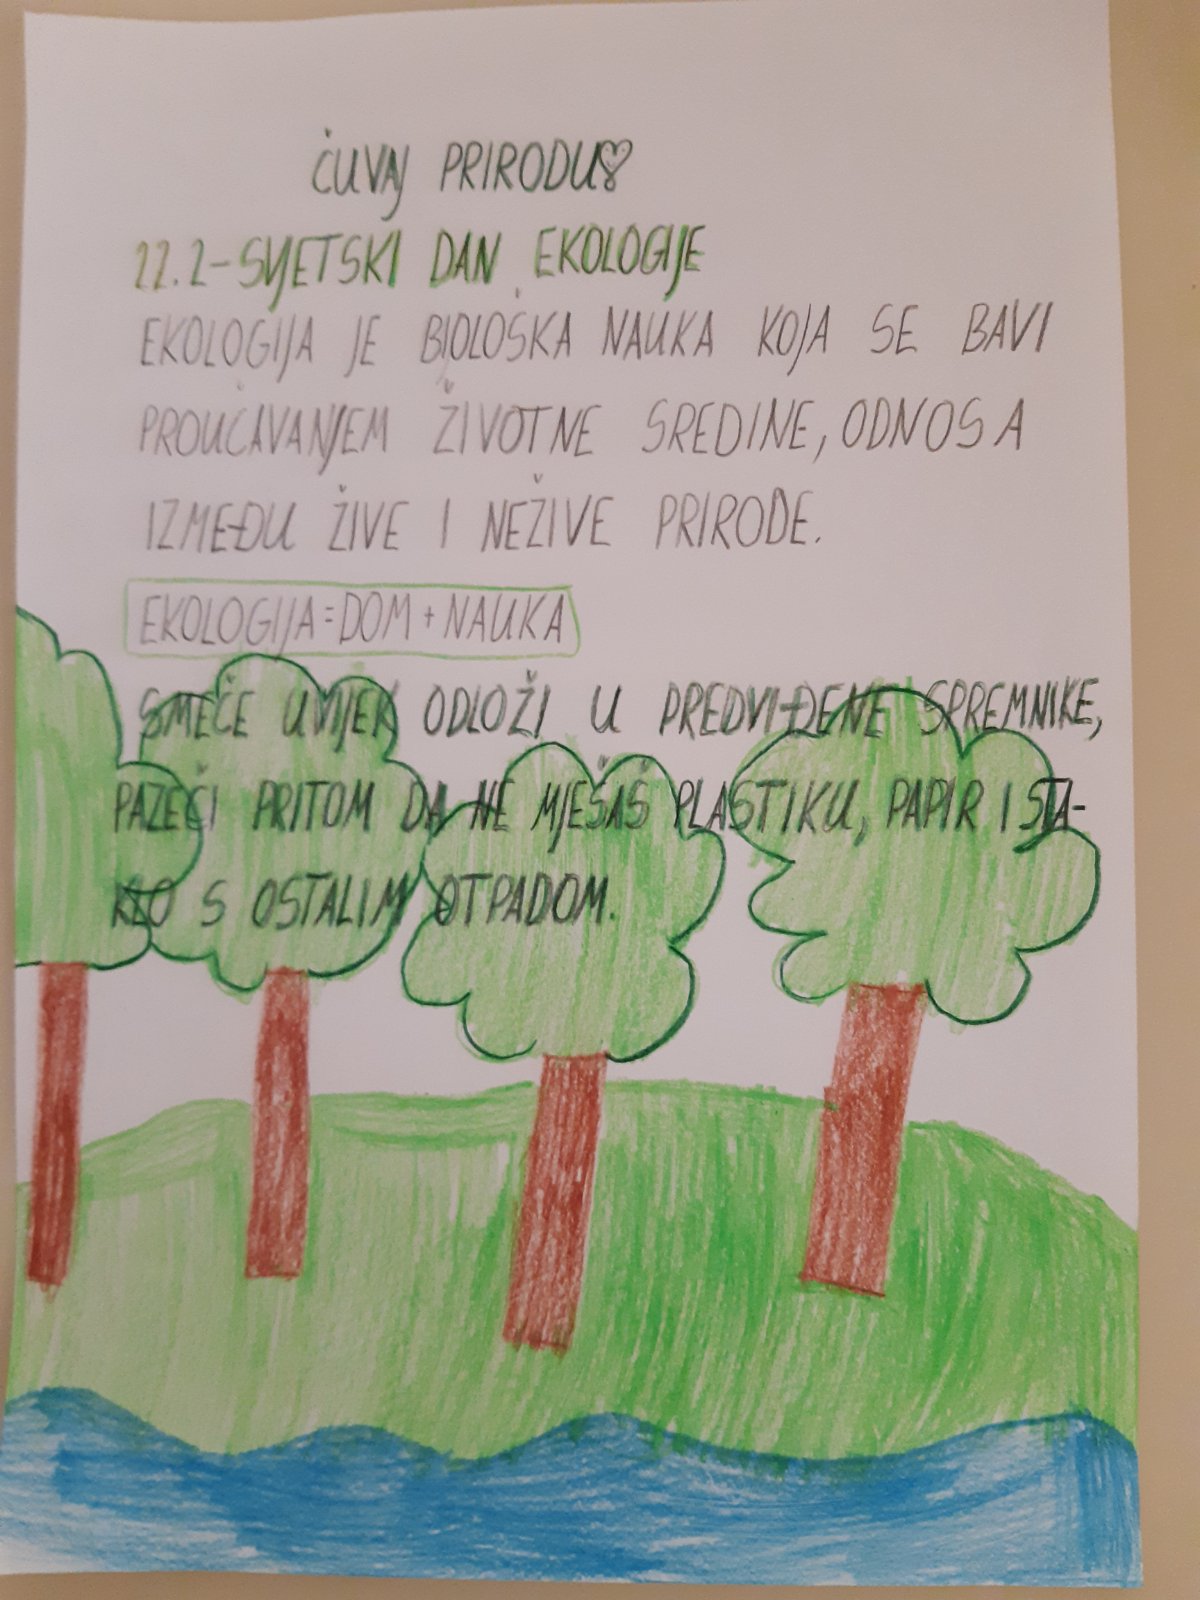 ČUVAJ PRIRODU!
22.2-SVJETSKI DAN EKOLOGIJE
EKOLOGIJA JE BIOLOŠKA NAUKA KOJA SE BAVI
PROUČAVANJEM ŽIVOTNE SREDINE, ODNOSA
IZMEĐU ŽIVE I NEŽIVE PRIRODE.
EKOLOGIJA=DOM+NAUKA
SMEČE UVIJEK ODLOŽI U PREDVIĐENE SPREMNIKE,
PAZEČI PRITOM DA NE MJEŠAŠ PLASTIKU, PAPIR I STA-
KLO S OSTALIM OTPADOM.